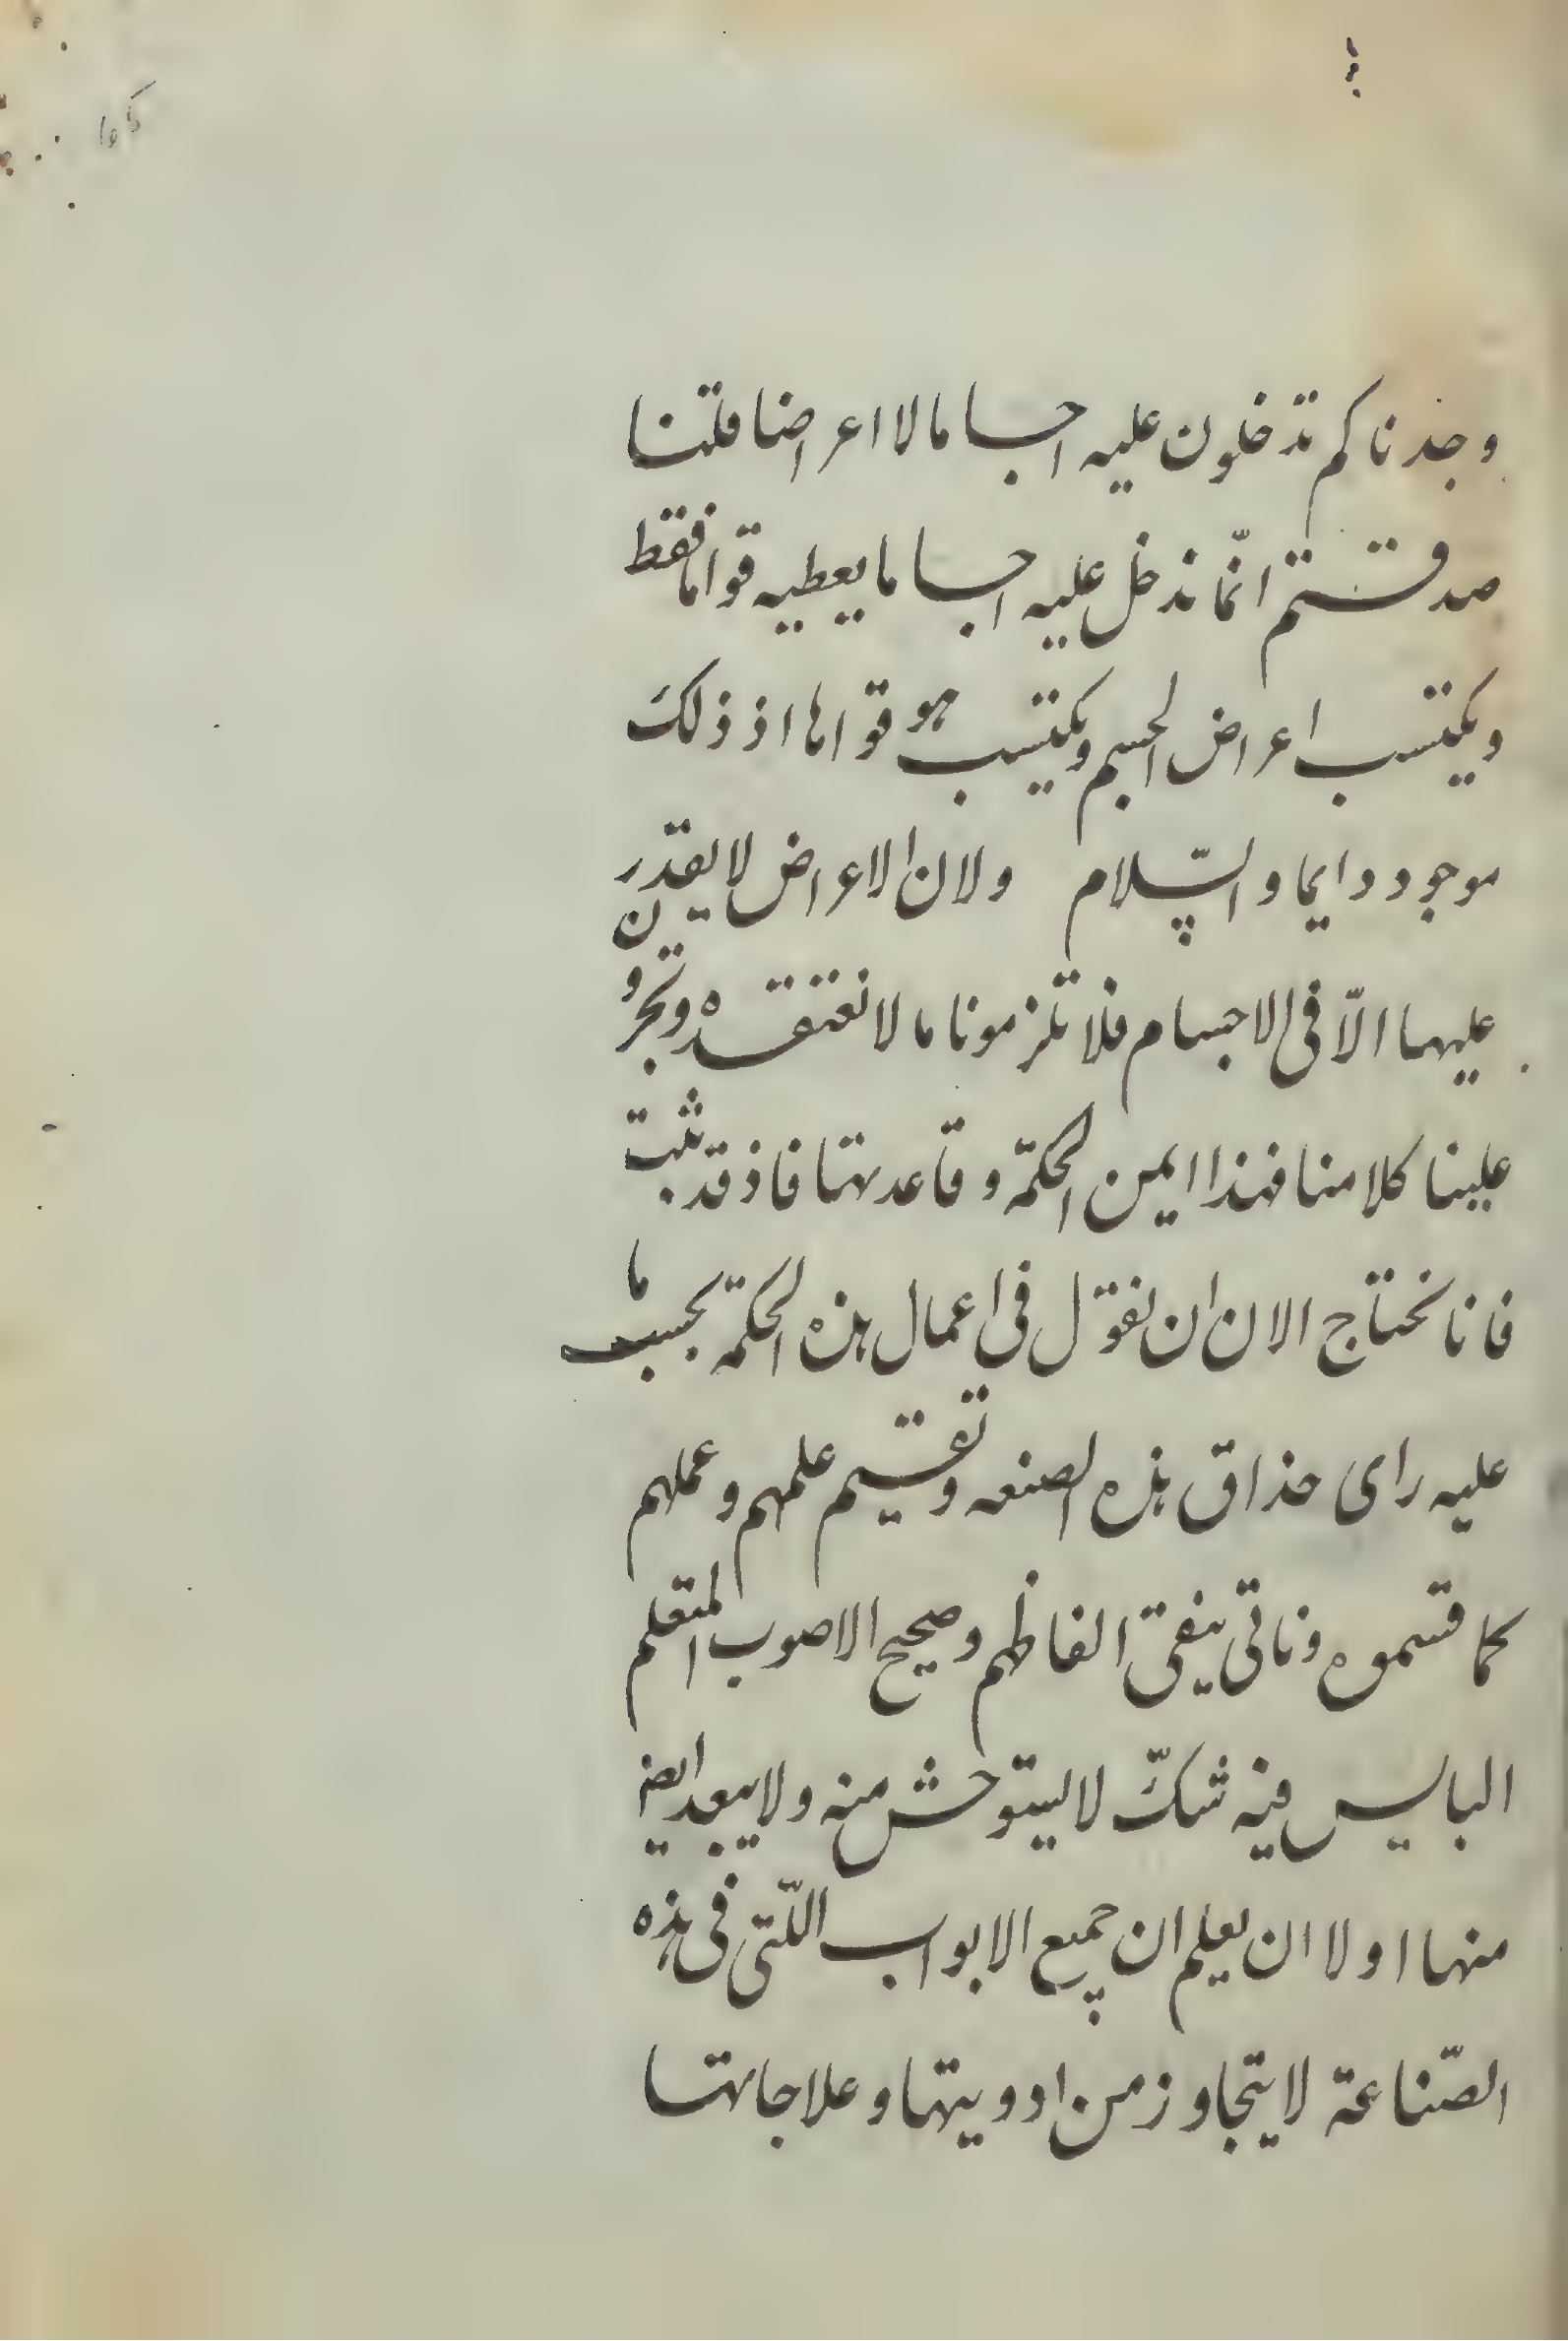 وجدناكم تدخلون عليه اجساما لا اعراضا قلتنا
صدقتم انّما ندخل عليه اجساما يعطيه قواما فقط
ويكتسب اعراض الجسم ويكتسب هو قواما اذ ذلك
موجود دايما والسّلام ولان الاعراض لا يقدّرن
عليها الّا فى الاجسام فلا تلزمونا ما لا نعتقده وتجرّوا
علينا كلامنا فهذا ايمن الحكمة وقاعدتها فاذ قد ثبت
فانا نحتاج الان ان نقول فى اعمال هذه الحكمة بحسب ما
عليه راى حذاق هذه الصنعه وتقسيم علمهم وعملهم
كما قسموه وناتى بنفى الفاظهم وصحيح الاصوب المتعلم
البايس فيه شكّ لا يستوحش منه ولا يبعد ايضا
منها اولا ان يعلم ان جميع الابواب اللّتى فى هذه
الصّناعة لا يتجاوز من ادويتها وعلاجاتها